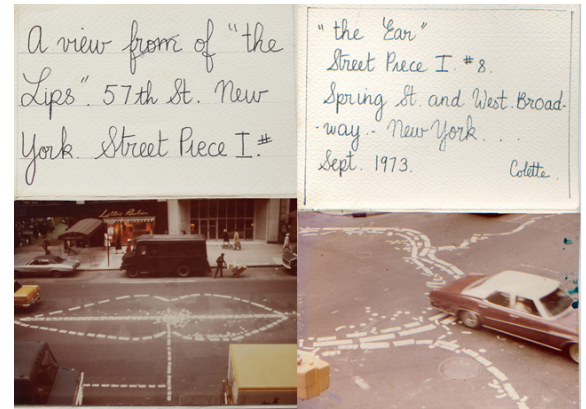 A view from of "the
Lips". 57th St. New
York. Street Piece I.#
"the Ear"
Street Piece I. #8.
Spring St. and West. Broad-
-way.- New York. . .
Sept. 1973.
Colette.